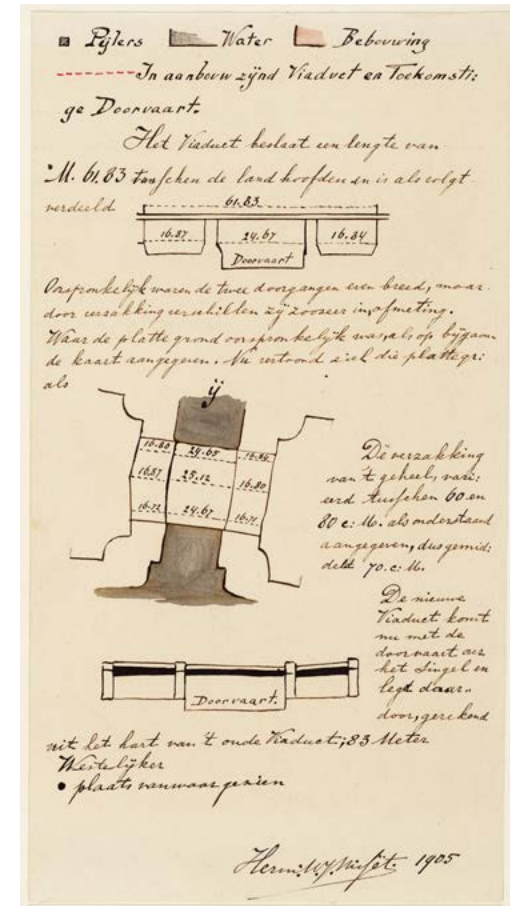 Pijlers Water Bebouwing
In aanbouw zijnd Viaduct en Toekomsti:
ge Doorvaart.
Het Viaduct beslaat een lengte van
M. 61.83 tusschen de land hoofden en is als volgt
verdeeld
61.83
16.87 24.67 16.84
Doorvaart
Oorspronkelijk waren de twee doorgangen even breed, maar
door verzakking verschillen zij zoozeer in afmeting.
Waar de platte grond oorspronkelijk was, als op bijgaan
de kaart aangegeven. Nu vertoond zich die plattegr:
als
ij
16.80 24.65 16.84
16.87 25.12 16.80
16.72 24.67 16.71
De verzakking
van 't geheel, vari:
eerd tusschen 60 en
80 c: M. als onderstaand
aangegeven, dus gemid:
deld 70. c: M.
De nieuwe
Viaduct komt
nu met de
doorvaart over
het Singel en
legt daar..
door, gerekend
Doorvaart.
uit het hart van 't oude Viaduct; 83 Meter
Westelijker
• plaats vanwaar gezien
1905